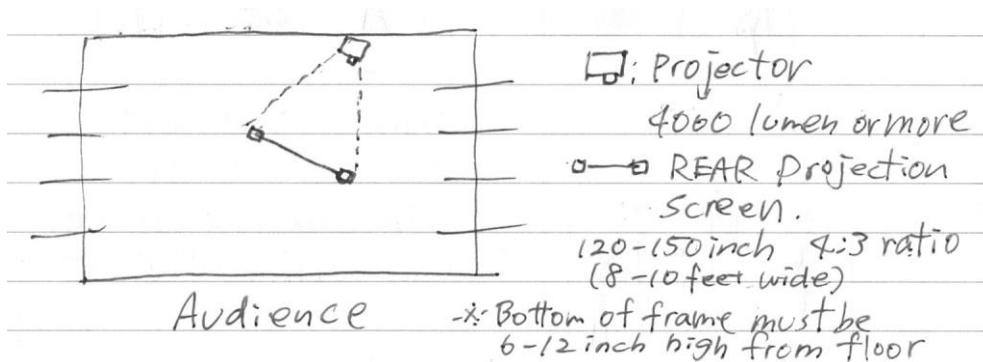 : Projector
4000 lumen or more
REAR projection
screen.
120-150 inch 4:3 ratio
(8-10 feet wide)
Audience
※ Bottom of frame must be
6-12 inch high from floor